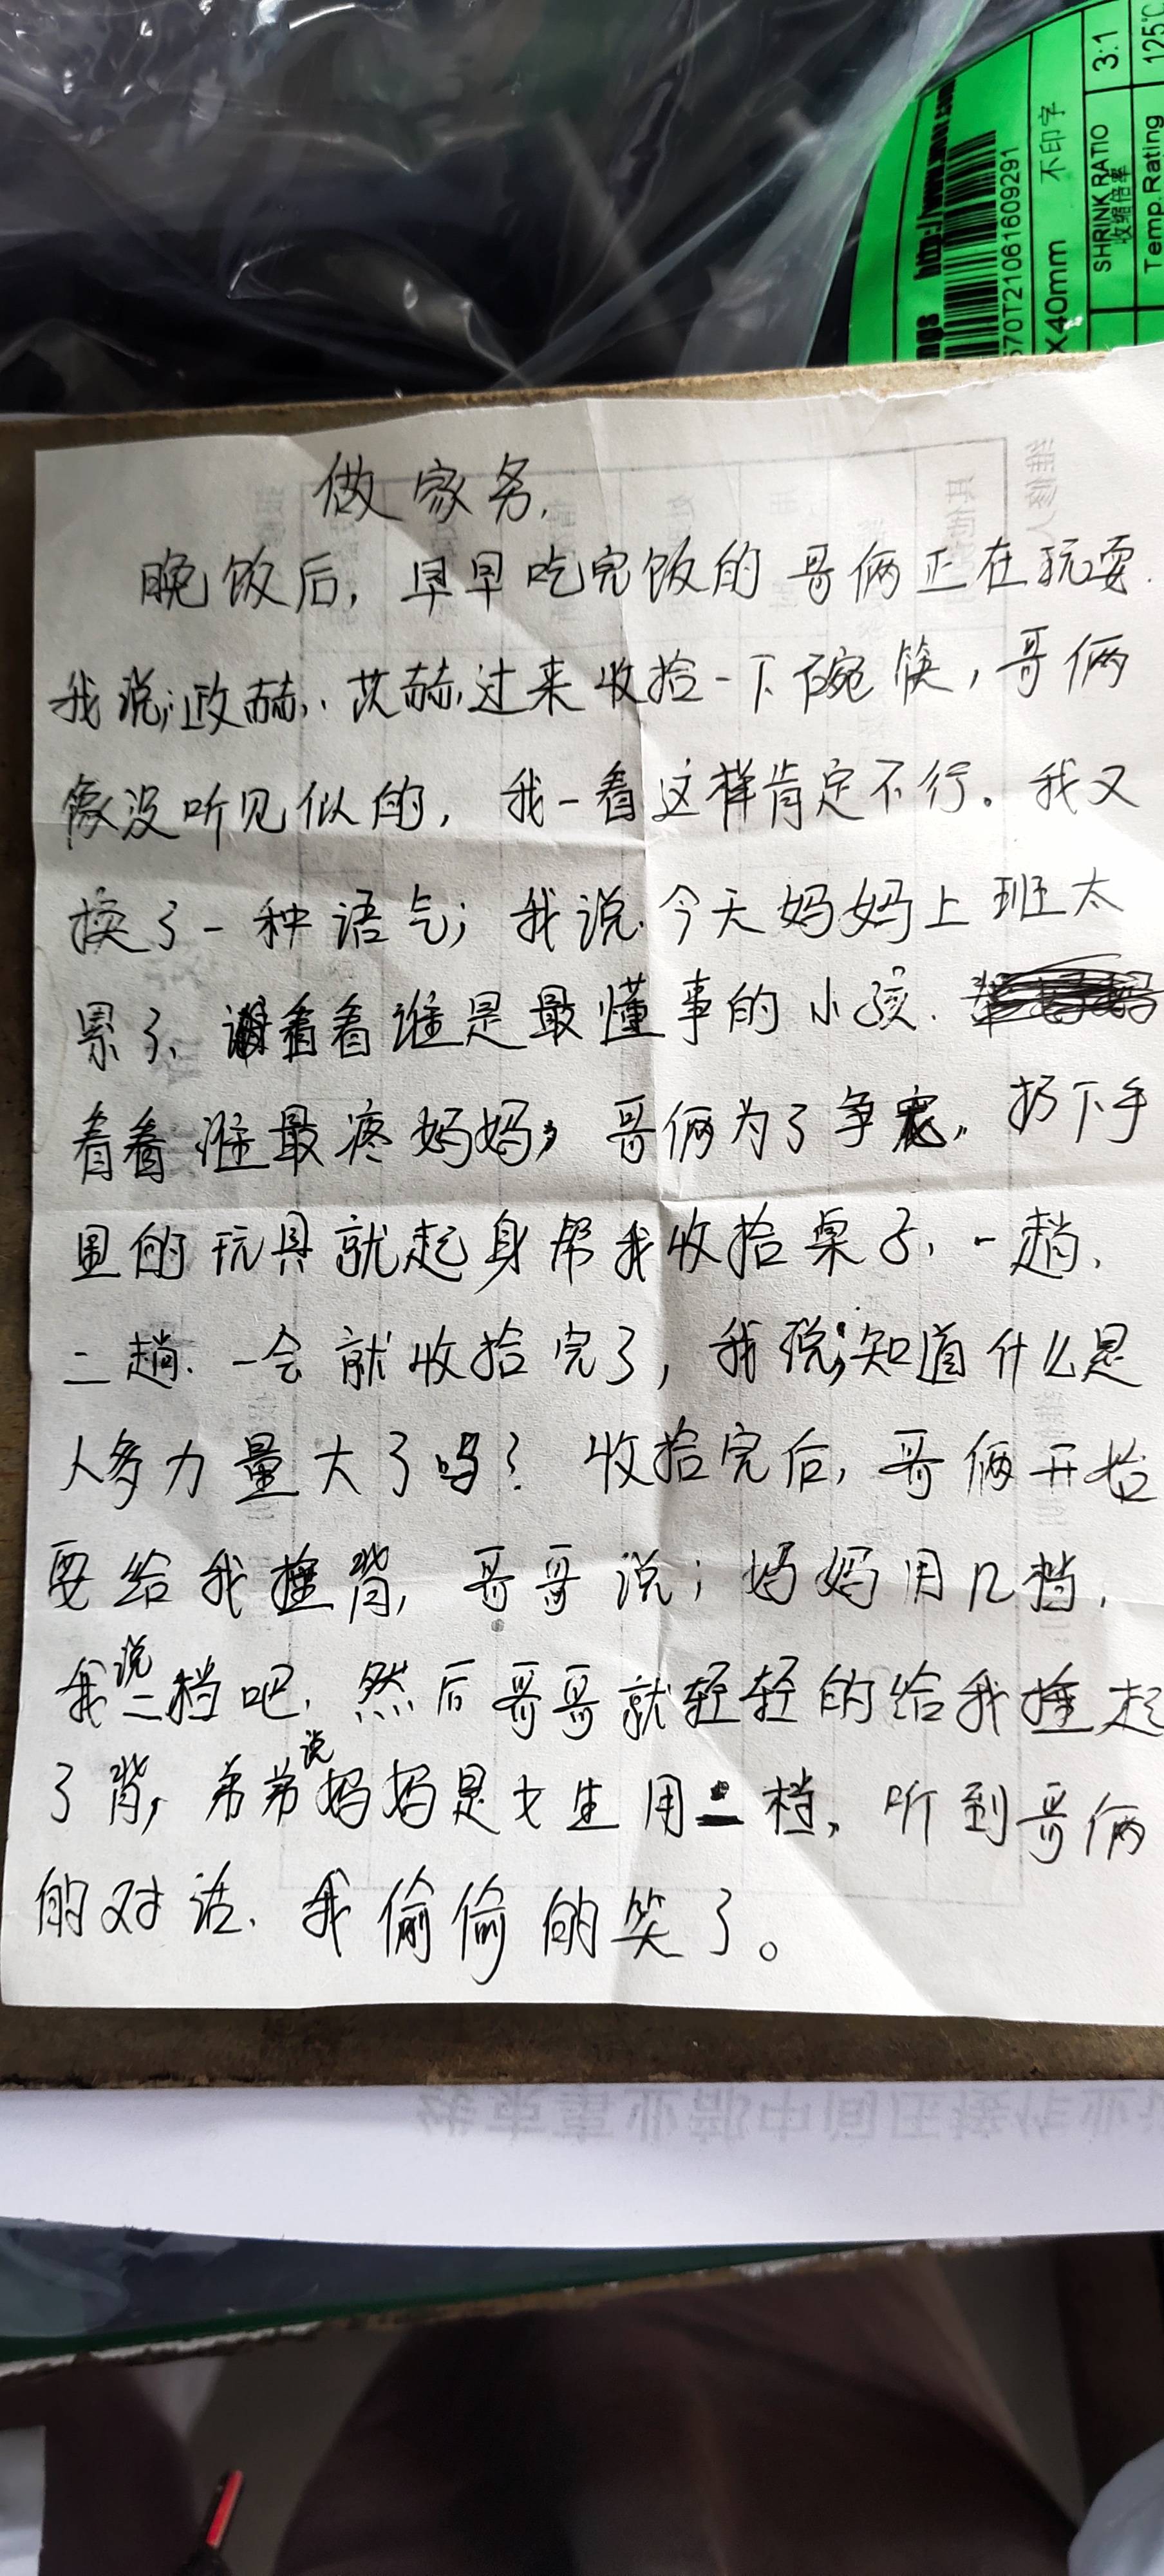 ngs http://www.woer.com
570T21061609291
X40mm 不印字
SHRINK RATIO 3:1
收缩倍率
Temp.Rating 125℃
做家务.
晚饭后,早早吃完饭的哥俩正在玩耍.
我说;政赫,.艾赫,过来收拾一下碗筷,哥俩
像没听见似的,我一看这样肯定不行。我又
换了一种语气;我说.今天妈妈上班太
累了、看看谁是最懂事的小孩.
看看谁最疼妈妈,哥俩为了争宠,扔下手
里的玩具就起身帮我收拾桌子,一趟、
二趟.一会就收拾完了,我说;知道什么是
人多力量大了吗?收拾完后,哥俩开始
要给我捶背,哥哥说;妈妈用几档,
我说二档吧,然后哥哥就轻轻的给我捶起
了背,弟弟说妈妈是女生用二档,听到哥俩
的对话、我偷偷的笑了。